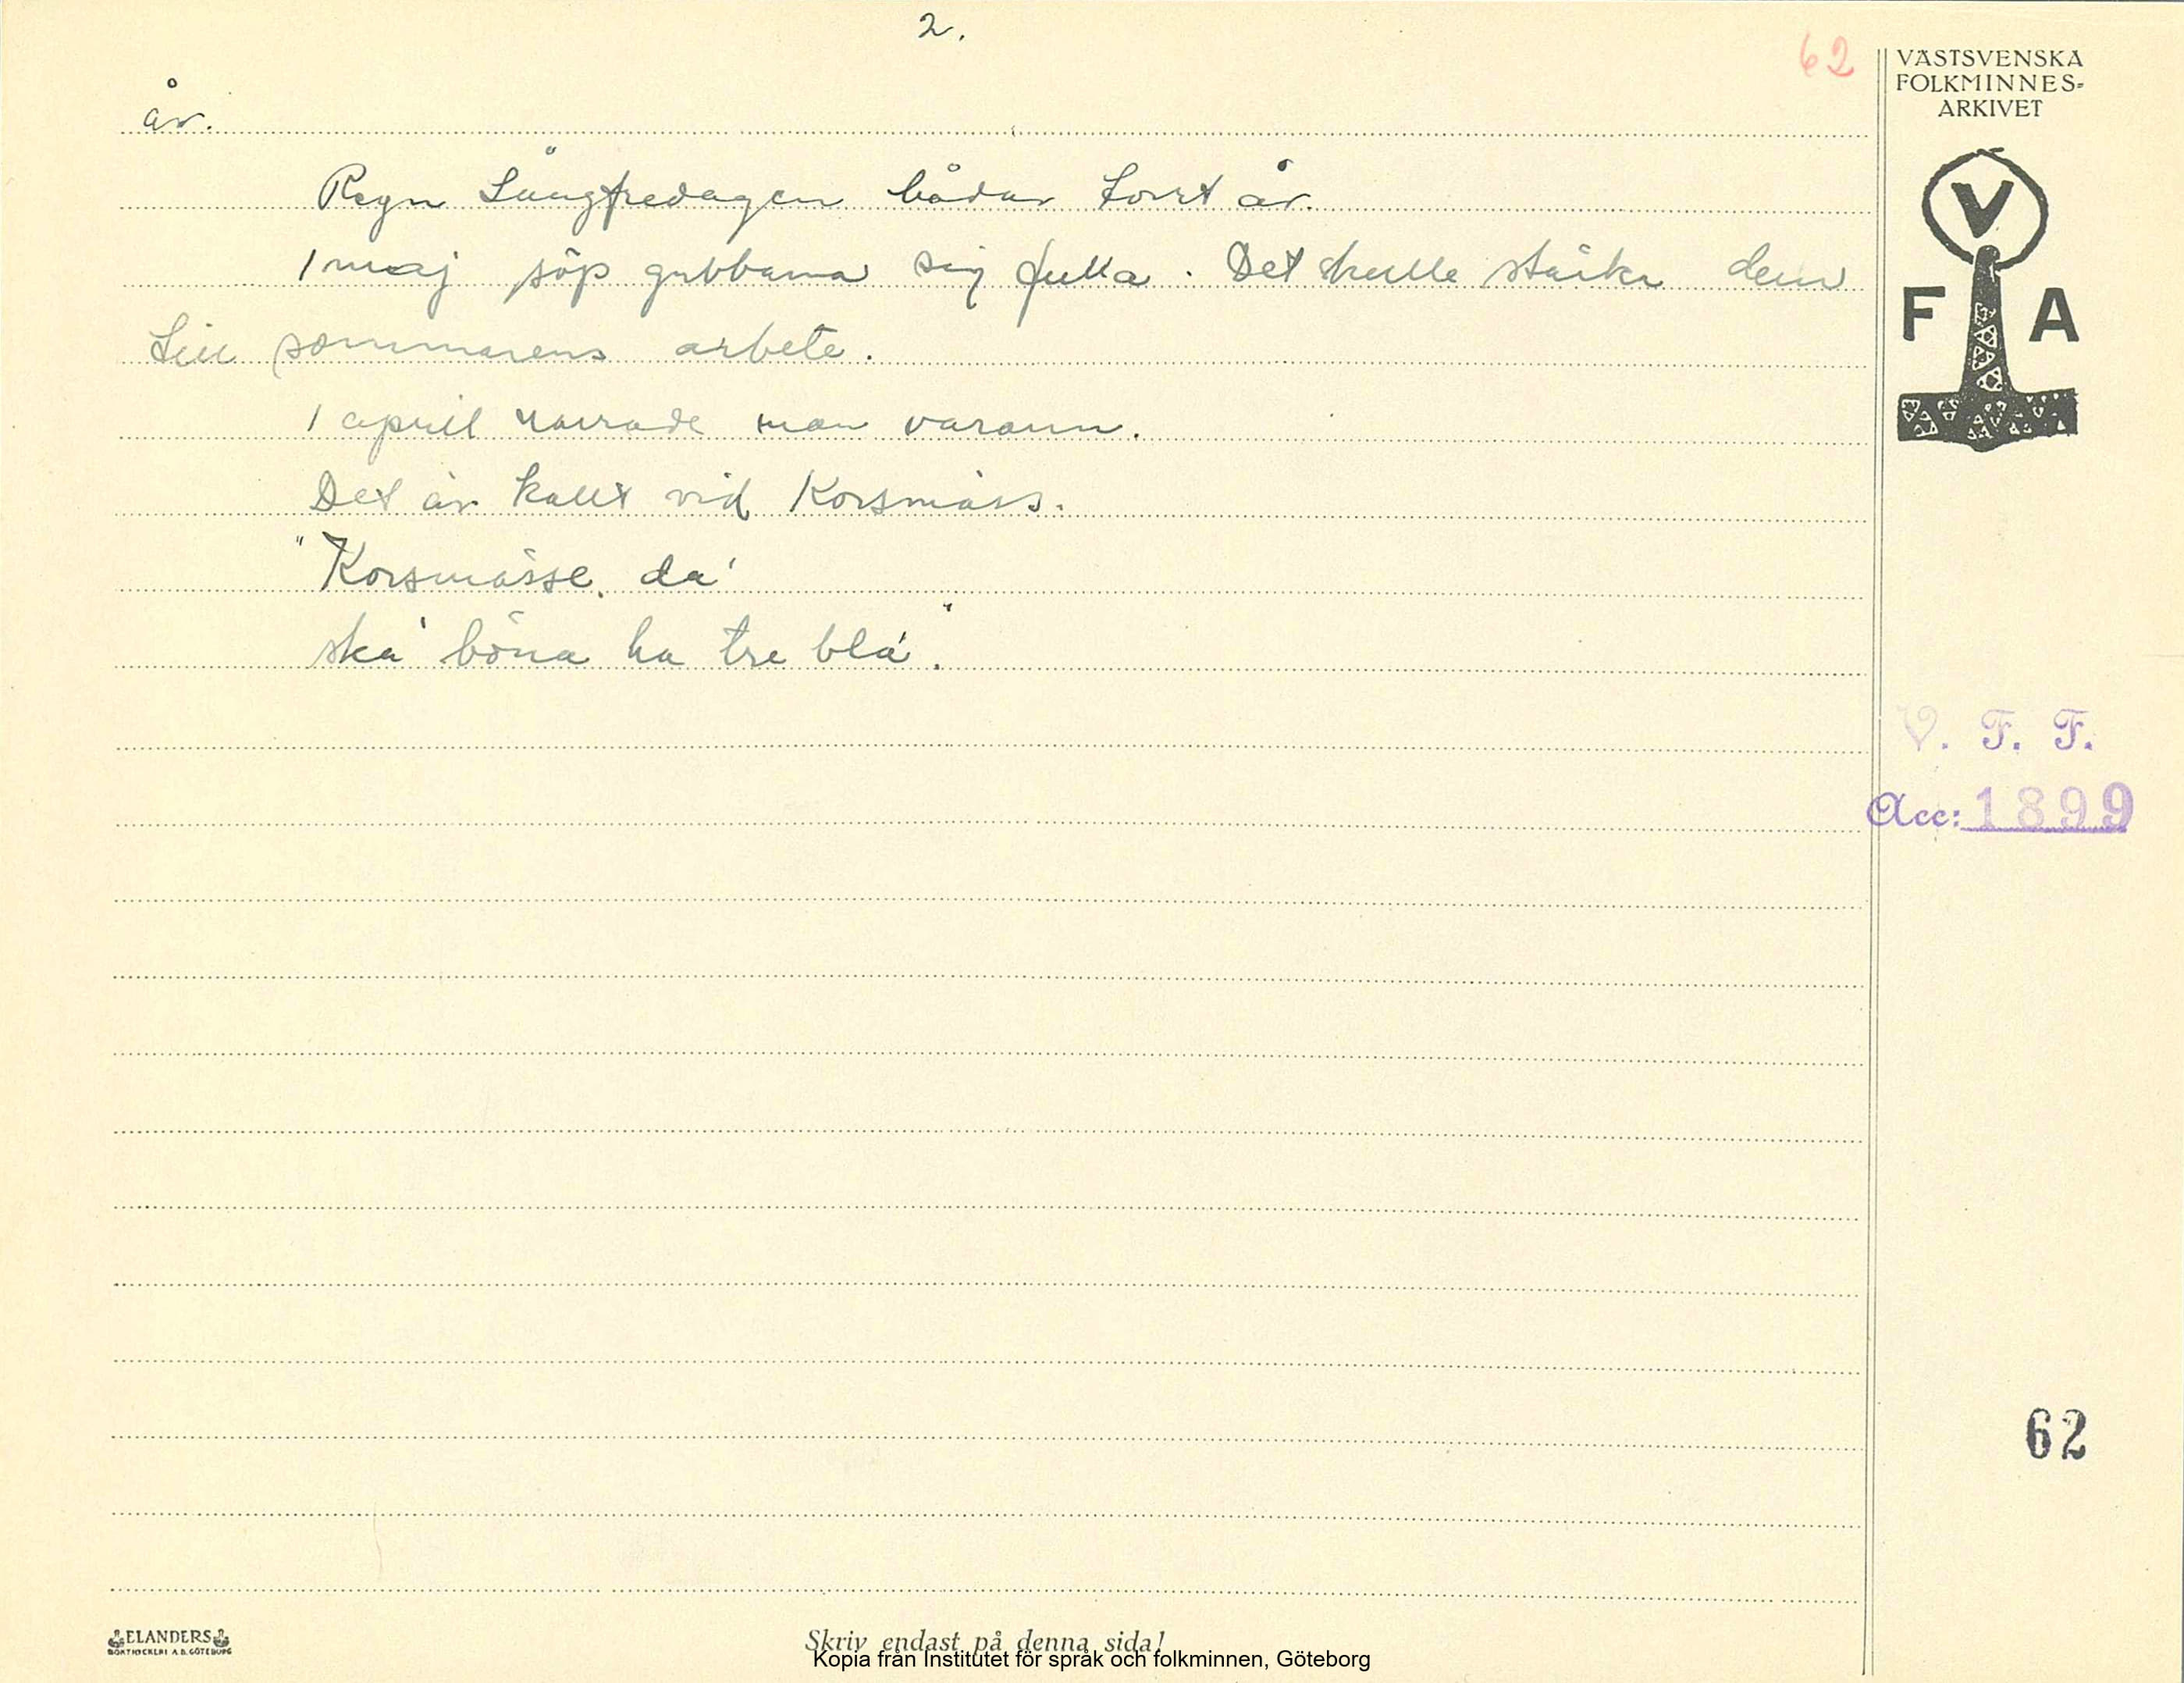 2.
62
VÄSTSVENSKA
FOLKMINNES-
ARKIVET
år.
Regn Långfredagen bådar torrt år.
1 maj söp gubbarna sig fulla. Det skulle stärka dem
till sommarens arbete.
1 april narrade man varann.
Det är kallt vid Korsmäss.
"Korsmässe da'
ska' böna ha tre bla'."
V
F A
V. F. F.
Acc: 1899
62
ELANDERS
BOKTRYCKERI A.B. GÖTEBORG
Skriv endast på denna sida!
Kopia från Institutet för språk och folkminnen, Göteborg